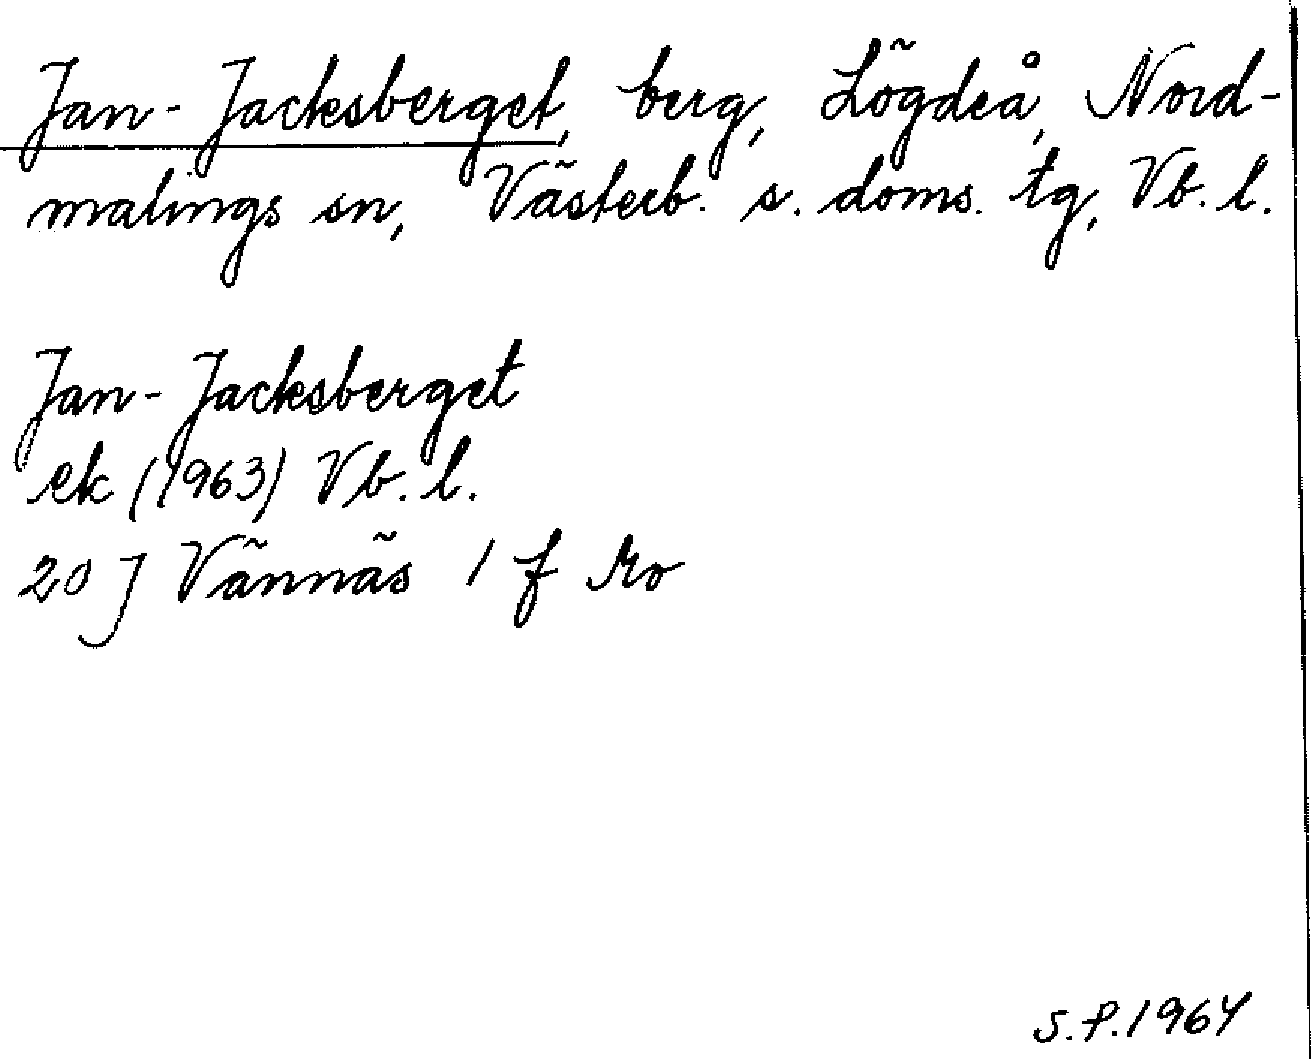 Jan-Jacksberget, berg, Lögdeå, Nord-
malings sn, Västerb. s. doms. tg, Vb. l.
Jan-Jacksberget
ek (1963) Vb. l.
20 J Vännäs 1 f ro
S.P. 1964